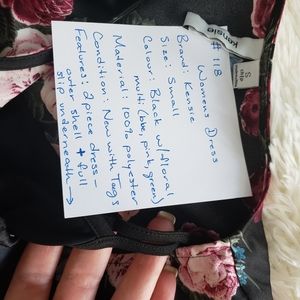 # 118
Womens Dress
Brand: Kensie
Size: Small
Colour: Black w/floral
multi (blue, pink, green)
Material: 100% polyester
Condition: New with Tags
Features: 2 piece dress -
outer shell + full
slip underneath →
kensie
S